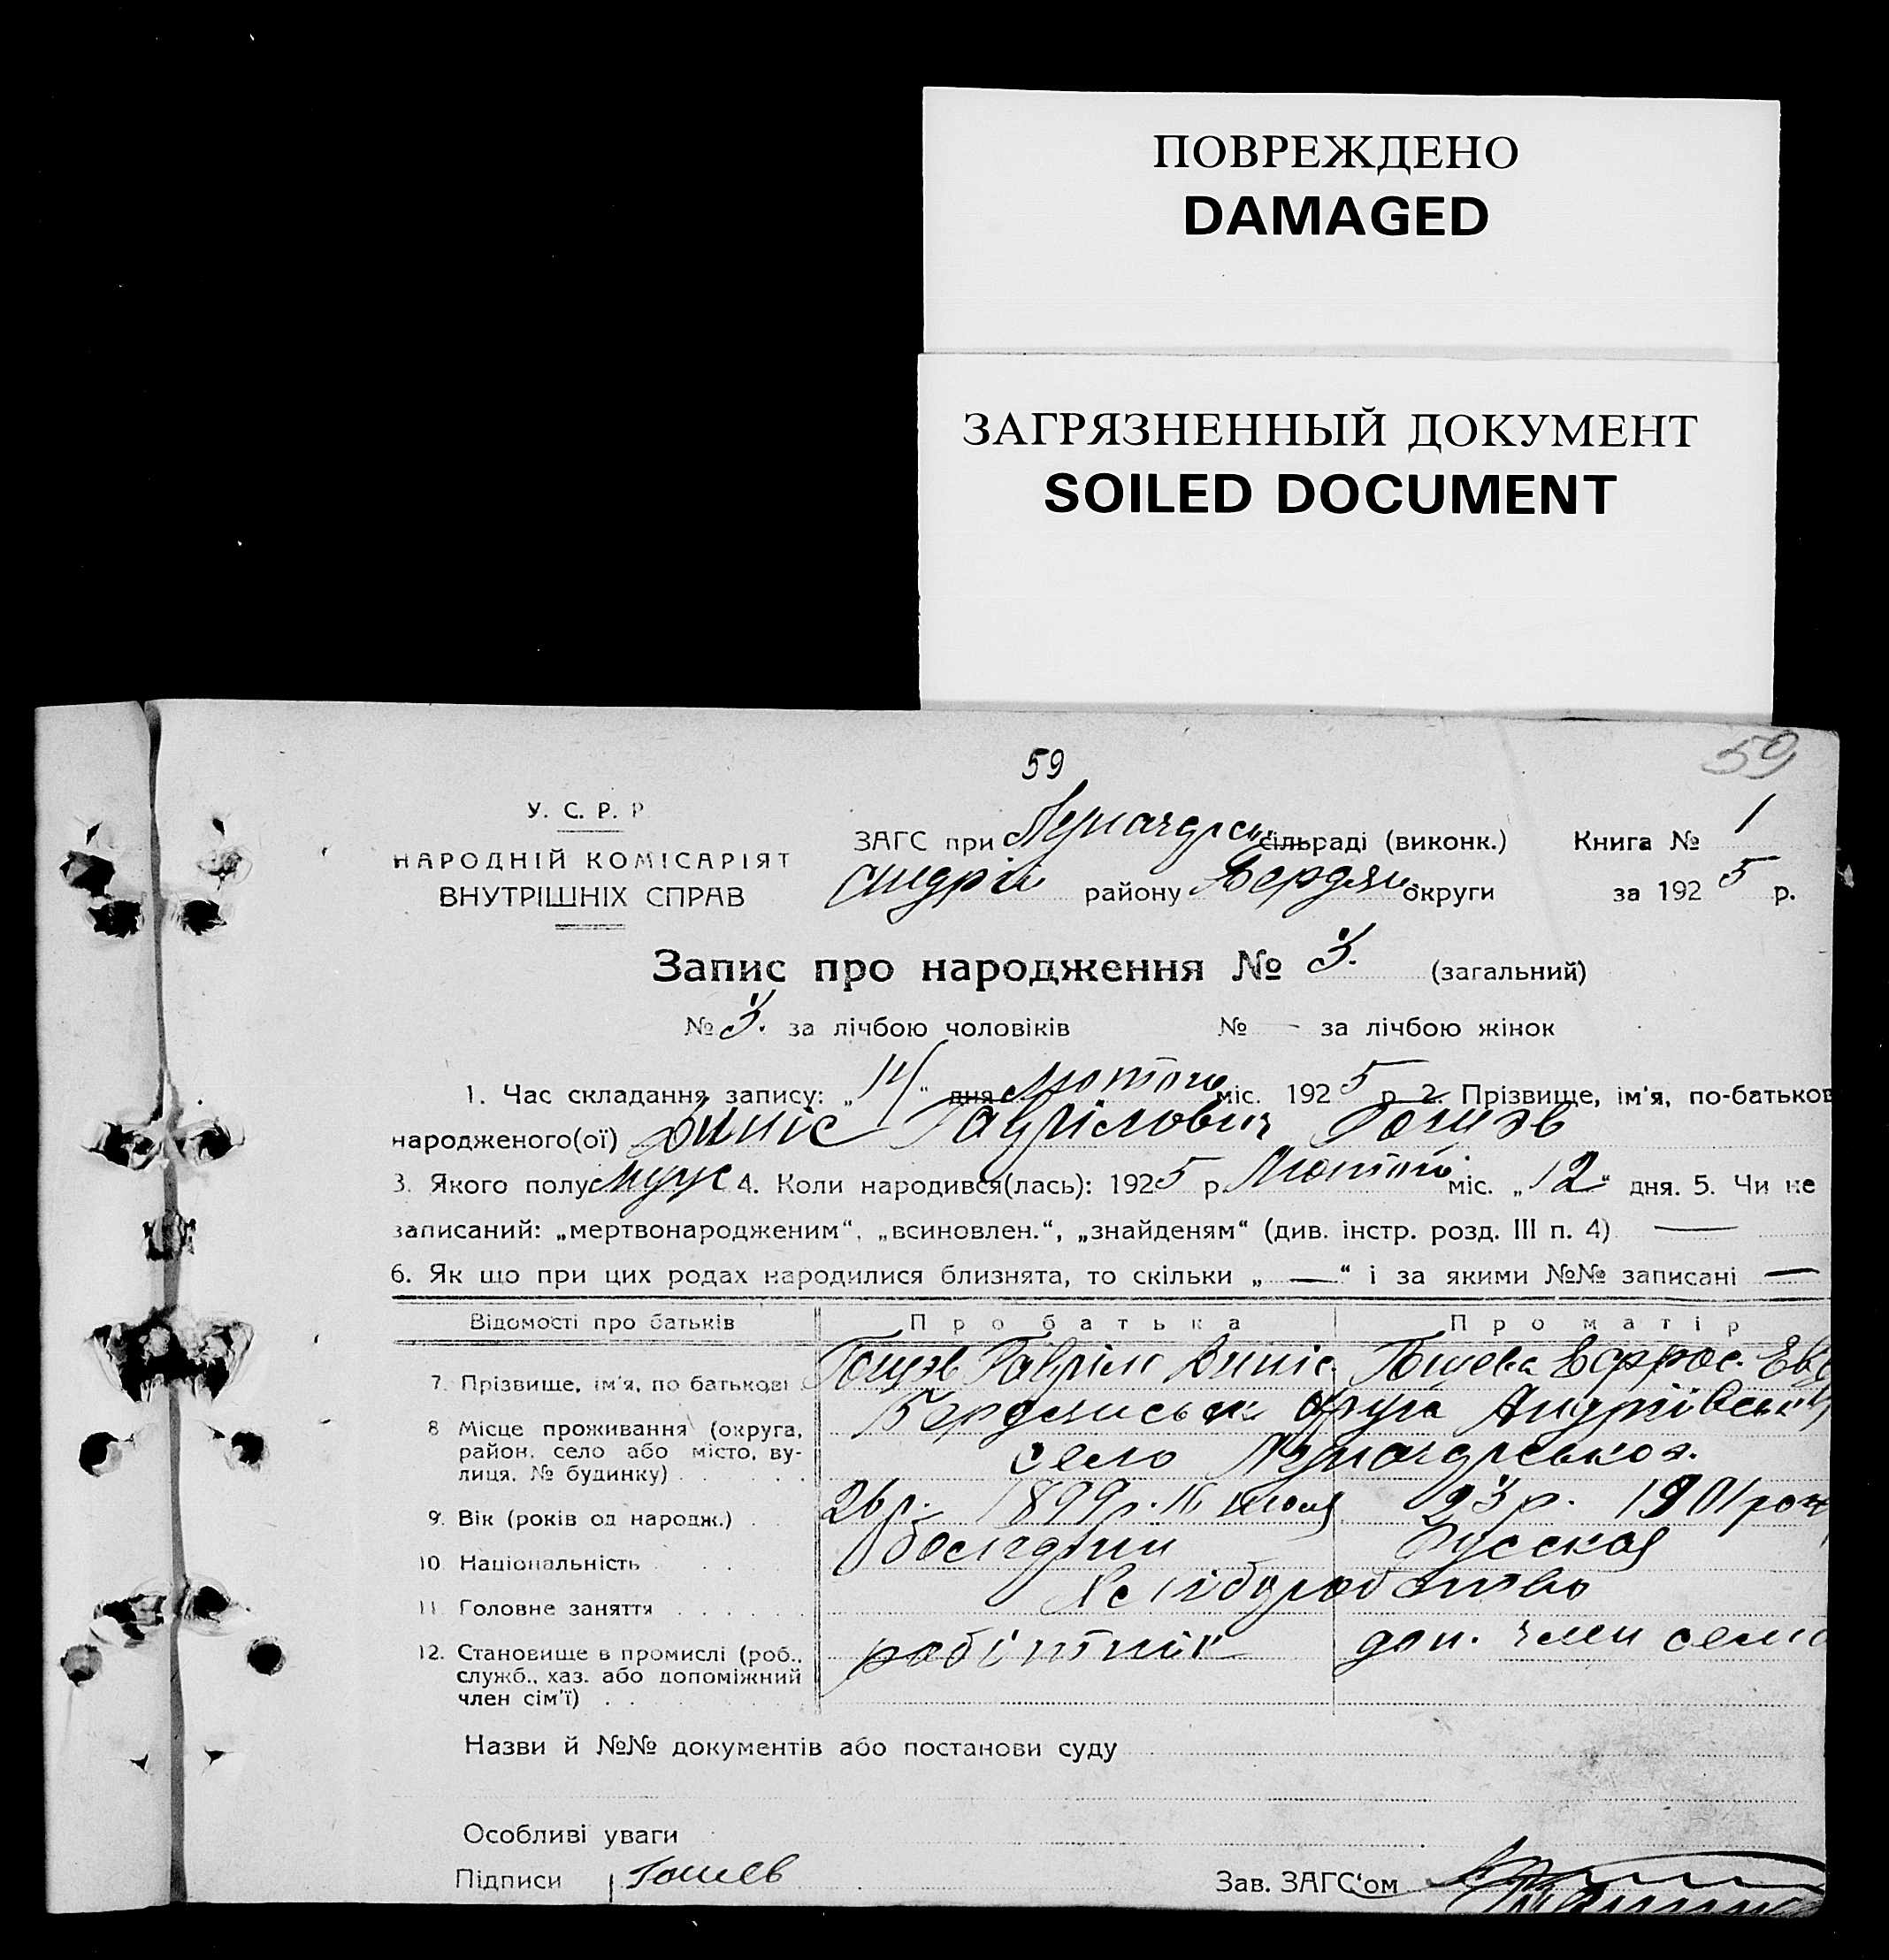 ПОВРЕЖДЕНО
DAMAGED
ЗАГРЯЗНЕННЫЙ ДОКУМЕНТ
SOILED DOCUMENT
59
59
У. С. Р. Р
НАРОДНІЙ КОМІСАРІЯТ
ВНУТРІШНІХ СПРАВ
ЗАГС при сільраді (виконк.) Книга № 1
Андрїв району Бердян округи за 1925 р.
Запис про народження № 3. (загальний)
№ 3. за лічбою чоловіків № - за лічбою жінок
1. Час складання запису: „14“ дня Лютого міс. 1925 р 2. Прізвище, ім'я, по-батьков
народженого(ої) Гаврілович
3. Якого полу Муж 4. Коли народився(лась): 1925 р Лютого міс. „12“ дня. 5. Чи не
записаний: „мертвонародженим“, „всиновлен.“, „знайденям“ (див. інстр. розд. III п. 4) —
6. Як що при цих родах народилися близнята, то скільки „—“ і за якими №№ записані —
Відомості про батьків Про батька Про матір
7. Прізвище, ім'я, по батькові Гавріло
8 Місце проживання (округа, район, село або місто, вулиця, № будинку) Бердянська округа Андріївськ
село
9. Вік (років од народж.) 26 р. 1899 р. 23 р. 1901 рок
10 Національність Русская
11 Головне заняття Хліборобство
12. Становище в промислі (роб., служб., хаз. або допоміжний член сім'ї) робітник доп. член семі
Назви й №№ документів або постанови суду
Особливі уваги
Підписи Гошев Зав. ЗАГС'ом